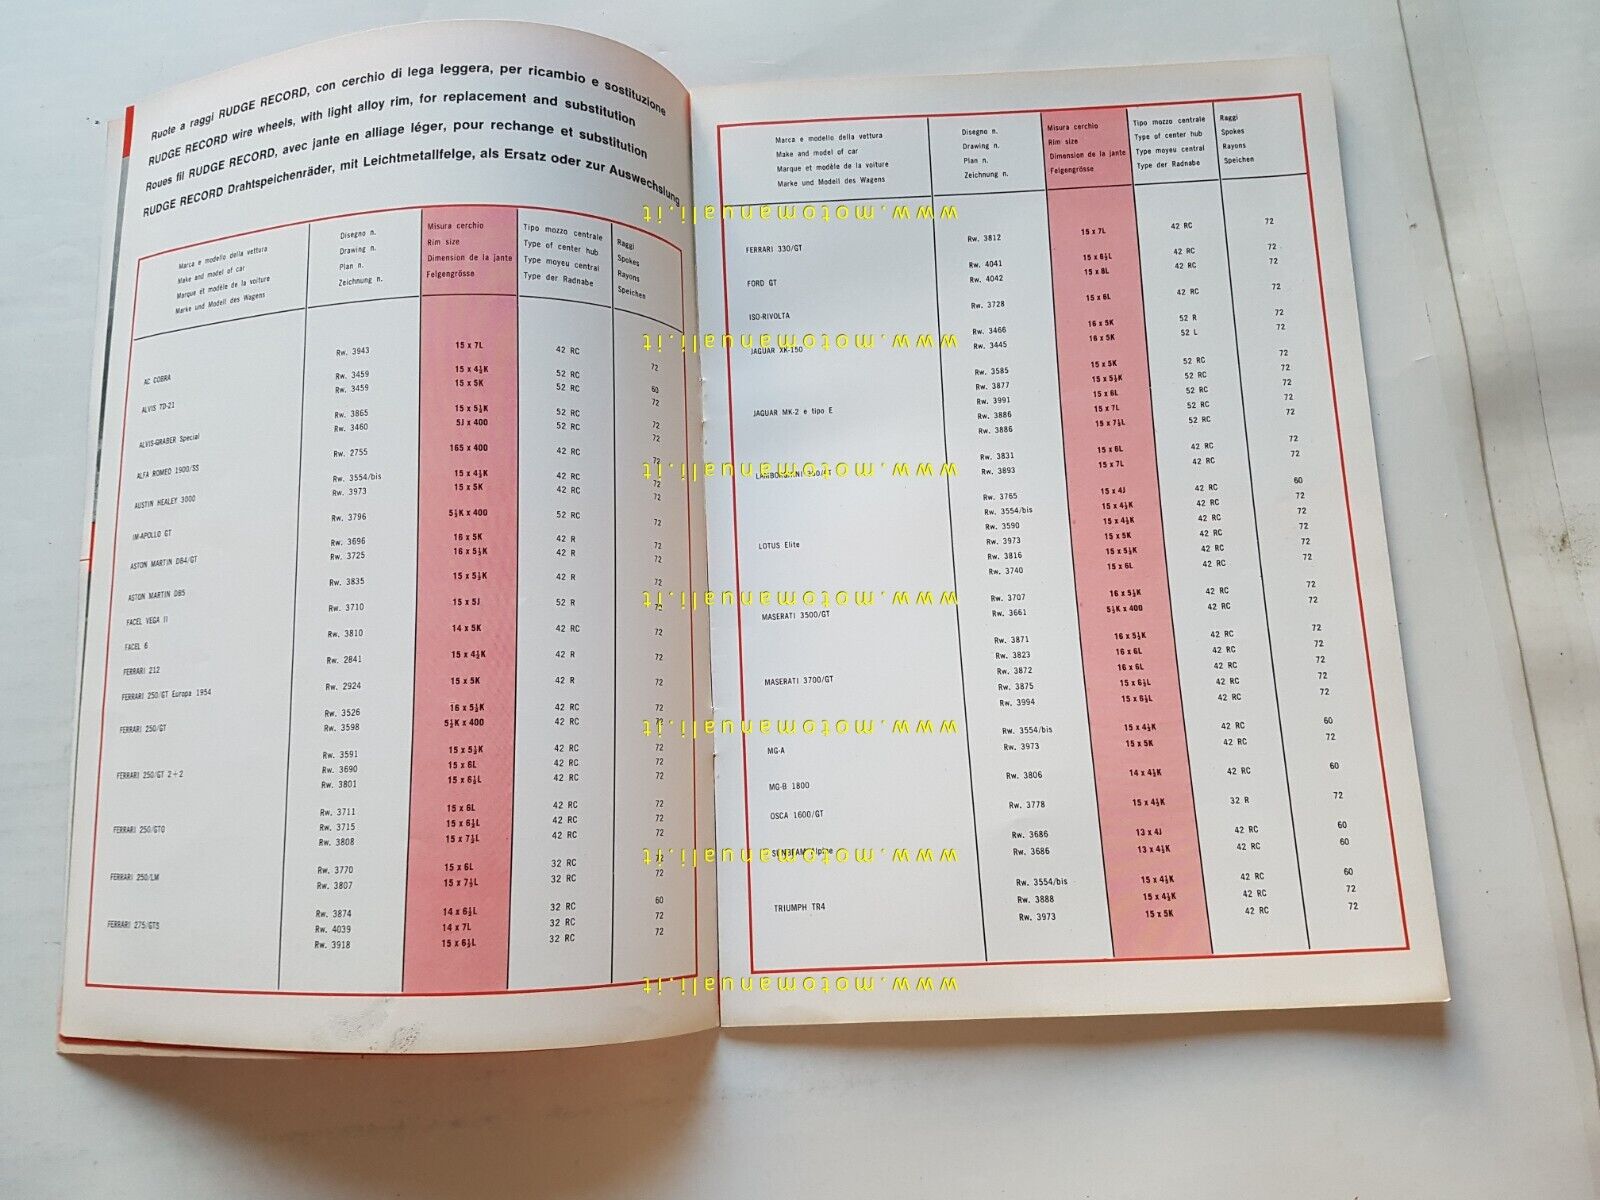 Ruote a raggi RUDGE RECORD, con cerchio di lega leggera, per ricambio e sostituzione
RUDGE RECORD wire wheels, with light alloy rim, for replacement and substitution
Roues fil RUDGE RECORD, avec jante en alliage léger, pour rechange et substitution
RUDGE RECORD Drahtspeichenräder, mit Leichtmetallfelge, als Ersatz oder zur Auswechslung
Marca e modello della vettura Disegno n. Misura cerchio Tipo mozzo centrale Raggi
Make and model of car Drawing n. Rim size Type of center hub Spokes
Marque et modèle de la voiture Plan n. Dimension de la jante Type moyeu central Rayons
Marke und Modell des Wagens Zeichnung n. Felgengrösse Type der Radnabe Speichen
AC COBRA Rw. 3943 15 x 7L 42 RC 72
ALVIS TD-21 Rw. 3459 15 x 4½K 52 RC 60
Rw. 3459 15 x 5K 52 RC 72
ALVIS-GRABER Special Rw. 3865 15 x 5½K 52 RC 72
Rw. 3460 5J x 400 52 RC 72
ALFA ROMEO 1900/SS Rw. 2755 165 x 400 42 RC 72
AUSTIN HEALEY 3000 Rw. 3554/bis 15 x 4½K 42 RC 72
Rw. 3973 15 x 5K 42 RC 72
IM-APOLLO GT Rw. 3796 5½K x 400 52 RC 72
ASTON MARTIN DB4/GT Rw. 3696 16 x 5K 42 R 72
Rw. 3725 16 x 5½K 42 R 72
ASTON MARTIN DB5 Rw. 3835 15 x 5½K 42 R 72
FACEL VEGA II Rw. 3710 15 x 5J 52 R 72
FACEL 6 Rw. 3810 14 x 5K 42 RC 72
FERRARI 212 Rw. 2841 15 x 4½K 42 R 72
FERRARI 250/GT Europa 1954 Rw. 2924 15 x 5K 42 R 72
FERRARI 250/GT Rw. 3526 16 x 5½K 42 RC 72
Rw. 3598 5½K x 400 42 RC 72
FERRARI 250/GT 2+2 Rw. 3591 15 x 5½K 42 RC 72
Rw. 3690 15 x 6L 42 RC 72
Rw. 3801 15 x 6½L 42 RC 72
FERRARI 250/GTO Rw. 3711 15 x 6L 42 RC 72
Rw. 3715 15 x 6½L 42 RC 72
Rw. 3808 15 x 7½L 42 RC 72
FERRARI 250/LM Rw. 3770 15 x 6L 32 RC 72
Rw. 3807 15 x 7½L 32 RC 72
FERRARI 275/GTS Rw. 3874 14 x 6½L 32 RC 60
Rw. 4039 14 x 7L 32 RC 72
Rw. 3918 15 x 6½L 32 RC 72
Marca e modello della vettura Disegno n. Misura cerchio Tipo mozzo centrale Raggi
Make and model of car Drawing n. Rim size Type of center hub Spokes
Marque et modèle de la voiture Plan n. Dimension de la jante Type moyeu central Rayons
Marke und Modell des Wagens Zeichnung n. Felgengrösse Type der Radnabe Speichen
FERRARI 330/GT Rw. 3812 15 x 7L 42 RC 72
FORD GT Rw. 4041 15 x 6½L 42 RC 72
Rw. 4042 15 x 8L 42 RC 72
ISO-RIVOLTA Rw. 3728 15 x 6L 42 RC 72
JAGUAR XK-150 Rw. 3466 16 x 5K 52 R 72
Rw. 3445 16 x 5K 52 L 72
JAGUAR MK-2 e tipo E Rw. 3585 15 x 5K 52 RC 72
Rw. 3877 15 x 5½K 52 RC 72
Rw. 3991 15 x 6L 52 RC 72
Rw. 3886 15 x 7L 52 RC 72
Rw. 3886 15 x 7½L 52 RC 72
LAMBORGHINI 350/GT Rw. 3831 15 x 6L 42 RC 72
Rw. 3893 15 x 7L 42 RC 72
LOTUS Elite Rw. 3765 15 x 4J 42 RC 60
Rw. 3554/bis 15 x 4½K 42 RC 72
Rw. 3590 15 x 4½K 42 RC 72
Rw. 3973 15 x 5K 42 RC 72
Rw. 3816 15 x 5½K 42 RC 72
Rw. 3740 15 x 6L 42 RC 72
MASERATI 3500/GT Rw. 3707 16 x 5½K 42 RC 72
Rw. 3661 5½K x 400 42 RC 72
MASERATI 3700/GT Rw. 3871 16 x 5½K 42 RC 72
Rw. 3823 16 x 6L 42 RC 72
Rw. 3872 16 x 6L 42 RC 72
Rw. 3875 15 x 6½L 42 RC 72
Rw. 3994 15 x 6½L 42 RC
MG-A Rw. 3554/bis 15 x 4½K 42 RC 60
Rw. 3973 15 x 5K 42 RC 72
MG-B 1800 Rw. 3806 14 x 4½K 42 RC 60
OSCA 1600/GT Rw. 3778 15 x 4½K 32 R 72
Alpine Rw. 3686 13 x 4J 42 RC 60
Rw. 3686 13 x 4½K 42 RC 60
TRIUMPH TR4 Rw. 3554/bis 15 x 4½K 42 RC 60
Rw. 3888 15 x 4½K 42 RC 72
Rw. 3973 15 x 5K 42 RC 72
www.motomanuali.it
www.motomanuali.it
www.motomanuali.it
www.motomanuali.it
www.motomanuali.it
www.motomanuali.it
www.motomanuali.it